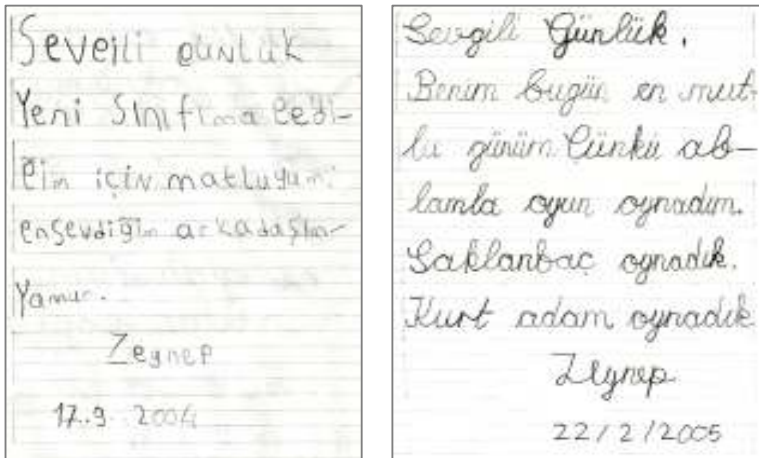 Seveili günlük
Yeni Sınıfıma eedi-
ğim için matluyum.
enSevdiğim arkadaşım-
Yamur.
Zeynep
17.9.2004
Sevgili Günlük.
Benim bugün en mut-
lu günüm Çünkü ab-
lamla oyun oynadım.
Saklanbaç oynadık.
Kurt adam oynadık
Zeynep
22/2/2005